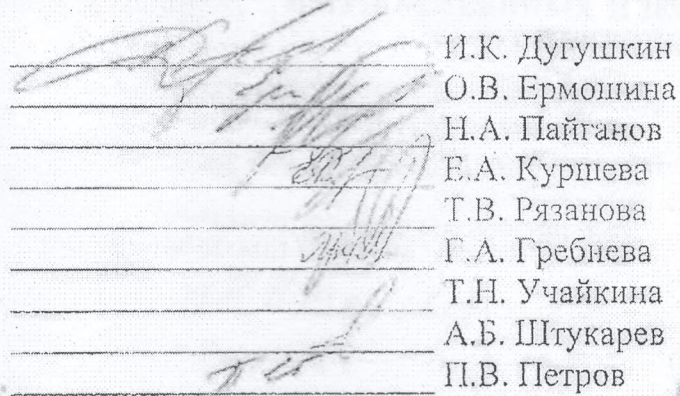 И.К. Дугушкин
О.В. Ермошина
Н.А. Пайганов
Е.А. Куршева
Т.В. Рязанова
Г.А. Гребнева
Т.Н. Учайкина
А.Б. Штукарев
П.В. Петров